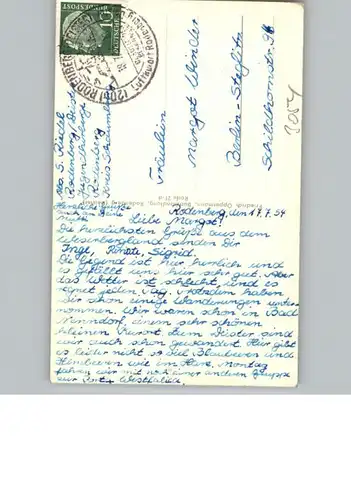 10
DEUTSCHE BUNDESPOST
(20a) RODENBERG
Luftkurort
Abs. S. Riedel
Jugendherberge
Rodenberg
Kreis Schaumburg
Fräulein
Margot Wender
Berlin-Steglitz
Schildhornstr. 94
Friedrich Oppermann, Buchhandlung, Rodenberg
Herzliche Grüße
auch an Deine
Mutti
Rodenberg, den 17.7.54
Liebe Margot!
Die herzlichsten Grüße aus dem
Weserbergland senden Dir
Inge, Renate, Sigrid.
Die Gegend ist hier herrlich und
es gefällt uns hier sehr gut. Aber
das Wetter ist schlecht, und es
regnet jeden Tag. Trotzdem haben
wir schon einige Wanderungen unter-
nommen. Wir waren schon in Bad
Nenndorf, einem sehr schönen
kleinen Kurort. Zum Deister sind
wir auch schon gewandert. Hier gibt
es leider nicht so viel Blaubeeren und
Himbeeren wie im Harz. Montag
fahren wir mit noch einer anderen Gruppe
zur Porta Westfalica